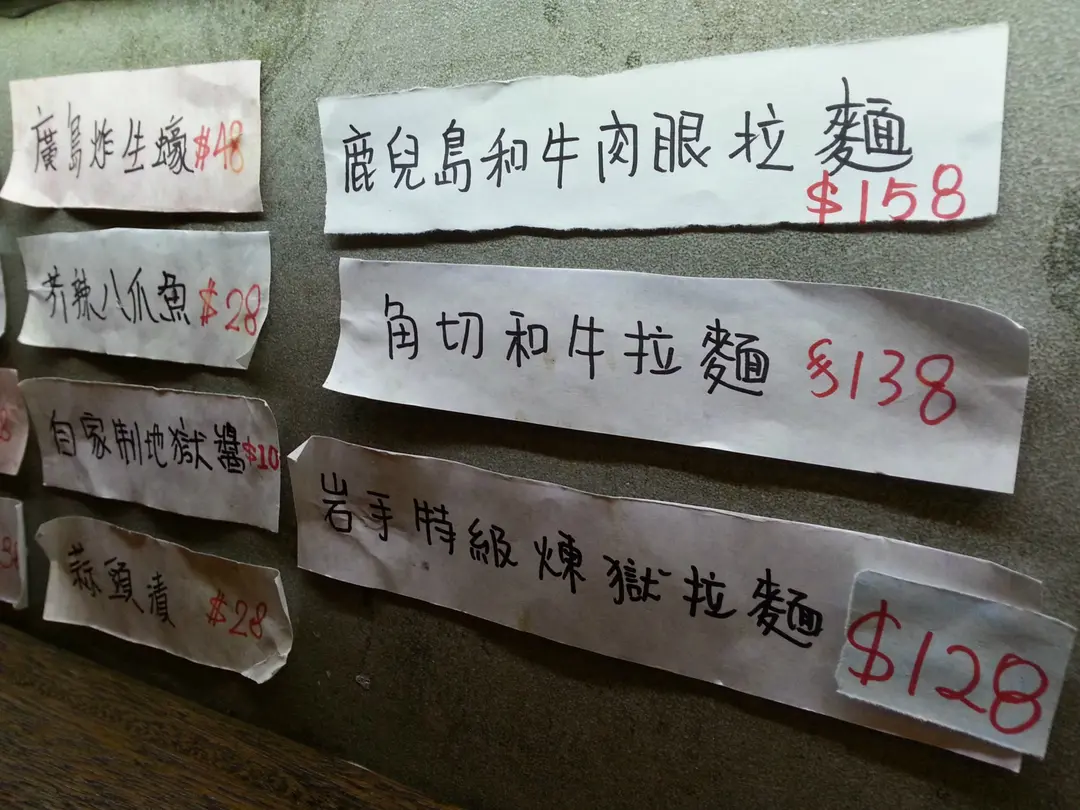 廣島炸生蠔$48
芥辣八爪魚$28
自家制地獄醬$10
蒜頭漬 $28
鹿兒島和牛肉眼拉麵
$158
角切和牛拉麵 $138
岩手特級煉獄拉麵 $128